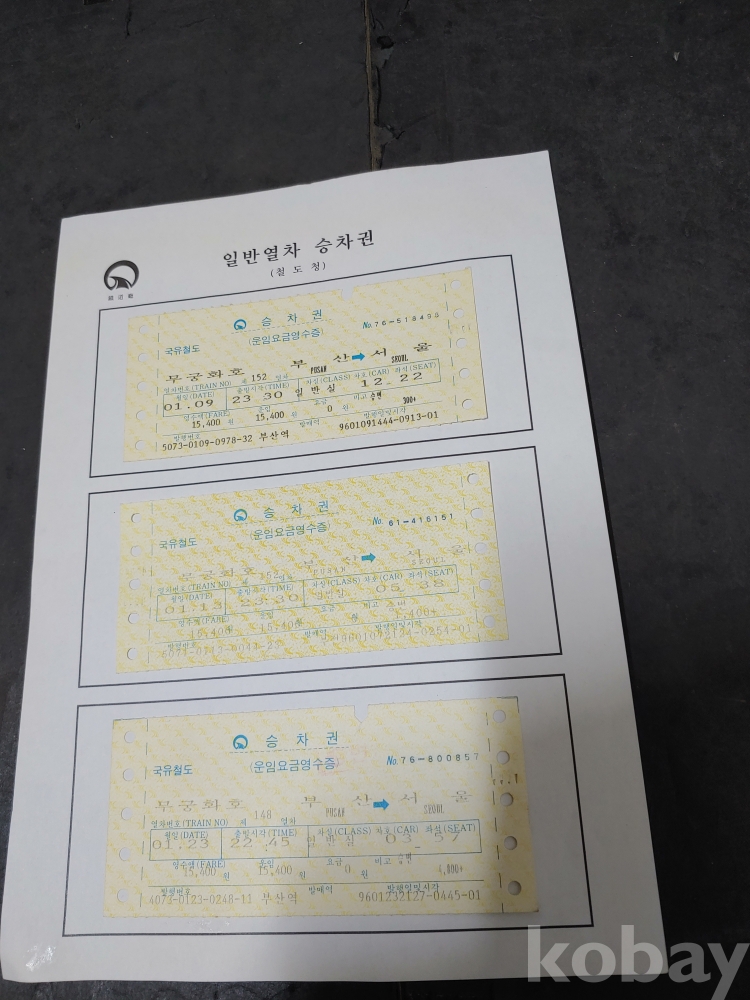 일반열차 승차권
(철 도 청)
鐵道廳
승 차 권
국유철도 (운임요금영수증) No. 76-518493
무궁화호 부 산 ➡ 서 울
열차번호(TRAIN NO) 제 152 열차 PUSAN SEOUL
월일(DATE) 출발시각(TIME) 차실(CLASS) 차호(CAR) 좌석(SEAT)
01.09 23.30 일반실 12.22
영수액(FARE) 운임 요금 비고 순방
15,400 원 15,400 원 0 원 300+
발행번호 발매역 발행일및시각
5073-0109-0978-32 부산역 9601091444-0913-01
승 차 권
국유철도 (운임요금영수증) No. 61-416151
무궁화호 부 산 ➡ 서 울
열차번호(TRAIN NO) 제 152 열차 PUSAN SEOUL
월일(DATE) 출발시각(TIME) 차실(CLASS) 차호(CAR) 좌석(SEAT)
01.13 23.30 일반실 05 38
영수액(FARE) 운임 요금 비고
15,400 15,400
발행번호 발매역 발행일및시각
승 차 권
국유철도 (운임요금영수증) No. 76-600857
무궁화호 부 산 ➡ 서 울
열차번호(TRAIN NO) 제 148 열차 PUSAN SEOUL
월일(DATE) 출발시각(TIME) 차실(CLASS) 차호(CAR) 좌석(SEAT)
01.23 22.45 일반실 03 57
영수액(FARE) 운임 요금 비고
15,400 원 15,400 원 0 원 4,800+
발행번호 발매역 발행일및시각
4073-0123-0248-11 부산역 9601232127-0445-01
kobay